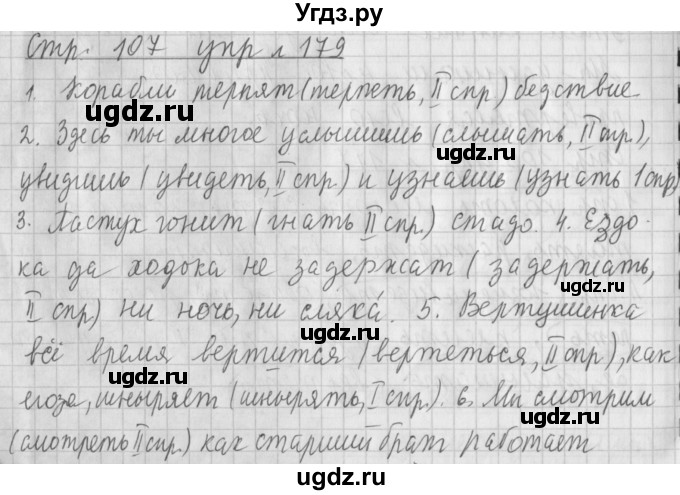 Угдз.ру
Стр. 107 упр. 179
1. Корабли терпят (терпеть, II спр) бедствие
2. Здесь ты многое услышишь (слышать, II спр),
увидишь (увидеть, II спр) и узнаешь (узнать I спр)
3. Пастух гонит (гнать II спр) стадо. 4. Ездо-
ка да ходока не задержат (задержать,
II спр) ни ночь, ни сляка́. 5. Вертушинка
всё время вертится (вертеться, II спр), как
егоза, шныряет (шнырять, I спр). 6. Мы смотрим
(смотреть II спр.) как старший брат работает
ugdz.ru
ugdz.ru
ugdz.ru
ugdz.ru
ugdz.ru
ugdz.ru
ugdz.ru
ugdz.ru
ugdz.ru
ugdz.ru
Угдз.ру